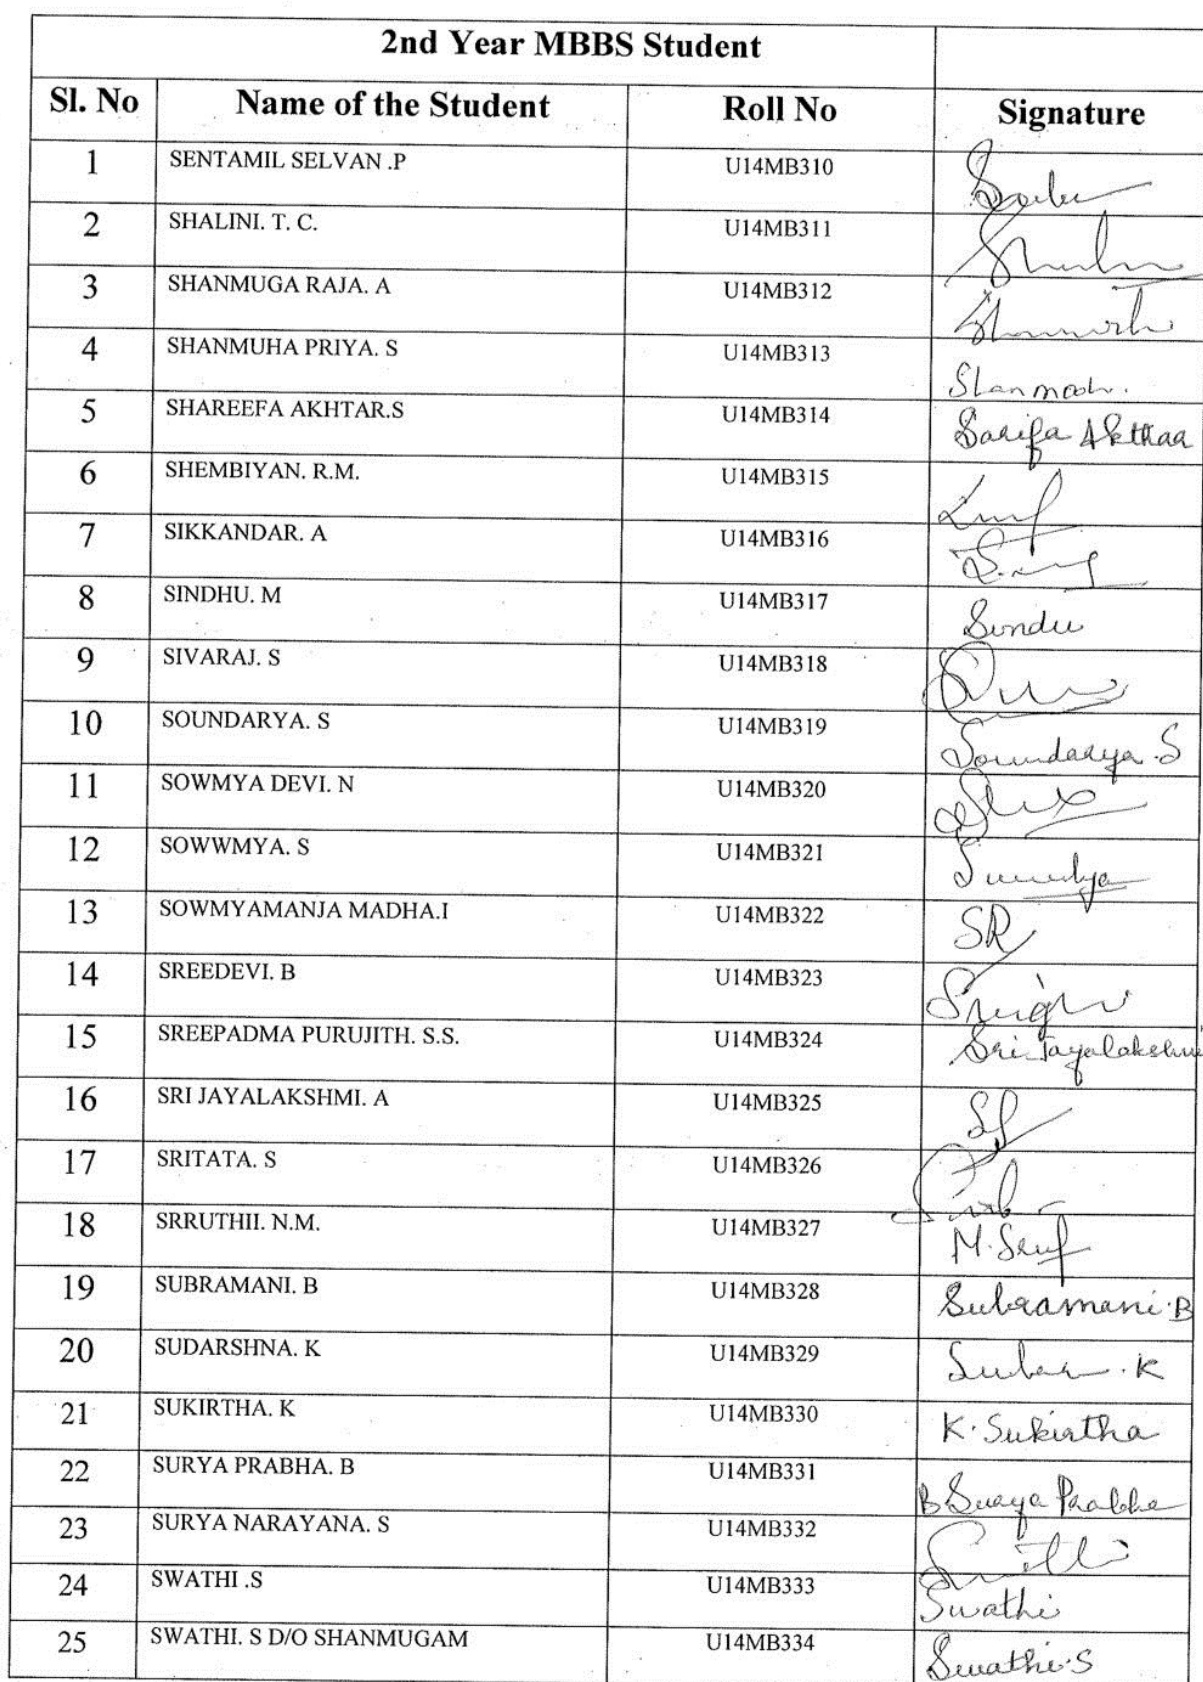 2nd Year MBBS Student
Sl. No Name of the Student Roll No Signature
1 SENTAMIL SELVAN .P U14MB310
2 SHALINI. T. C. U14MB311
3 SHANMUGA RAJA. A U14MB312
4 SHANMUHA PRIYA. S U14MB313
5 SHAREEFA AKHTAR.S U14MB314 Sarifa Akthar
6 SHEMBIYAN. R.M. U14MB315
7 SIKKANDAR. A U14MB316
8 SINDHU. M U14MB317 Sindu
9 SIVARAJ. S U14MB318
10 SOUNDARYA. S U14MB319 Soundarya .S
11 SOWMYA DEVI. N U14MB320
12 SOWWMYA. S U14MB321
13 SOWMYAMANJA MADHA.I U14MB322 SR
14 SREEDEVI. B U14MB323
15 SREEPADMA PURUJITH. S.S. U14MB324 Sri Jayalakshmi
16 SRI JAYALAKSHMI. A U14MB325
17 SRITATA. S U14MB326
18 SRRUTHII. N.M. U14MB327
19 SUBRAMANI. B U14MB328 Subramani.B
20 SUDARSHNA. K U14MB329
21 SUKIRTHA. K U14MB330 K. Sukirtha
22 SURYA PRABHA. B U14MB331 B Surya Prabha
23 SURYA NARAYANA. S U14MB332
24 SWATHI .S U14MB333 Swathi
25 SWATHI. S D/O SHANMUGAM U14MB334 Swathi.S